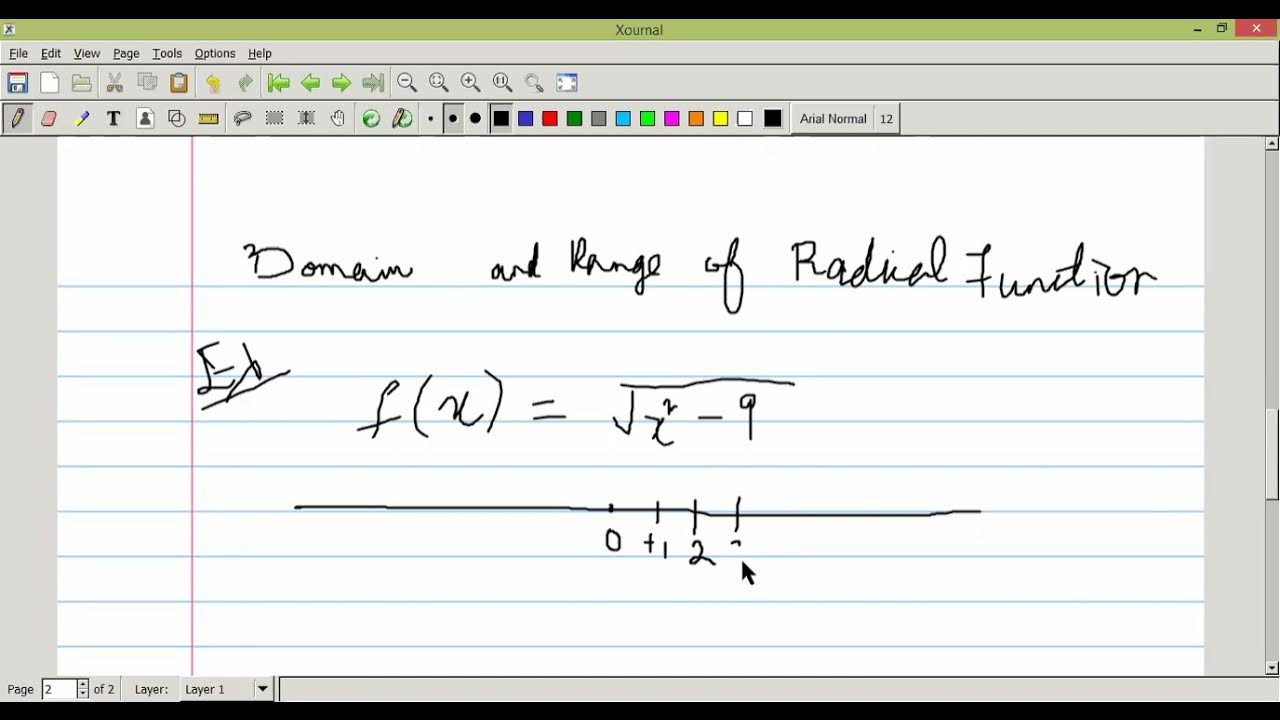 Xournal
File Edit View Page Tools Options Help
Arial Normal 12
Domain and Range of Radical Function
Ex
f(x) = √x² - 9
0 +1 2
Page 2 of 2 Layer: Layer 1